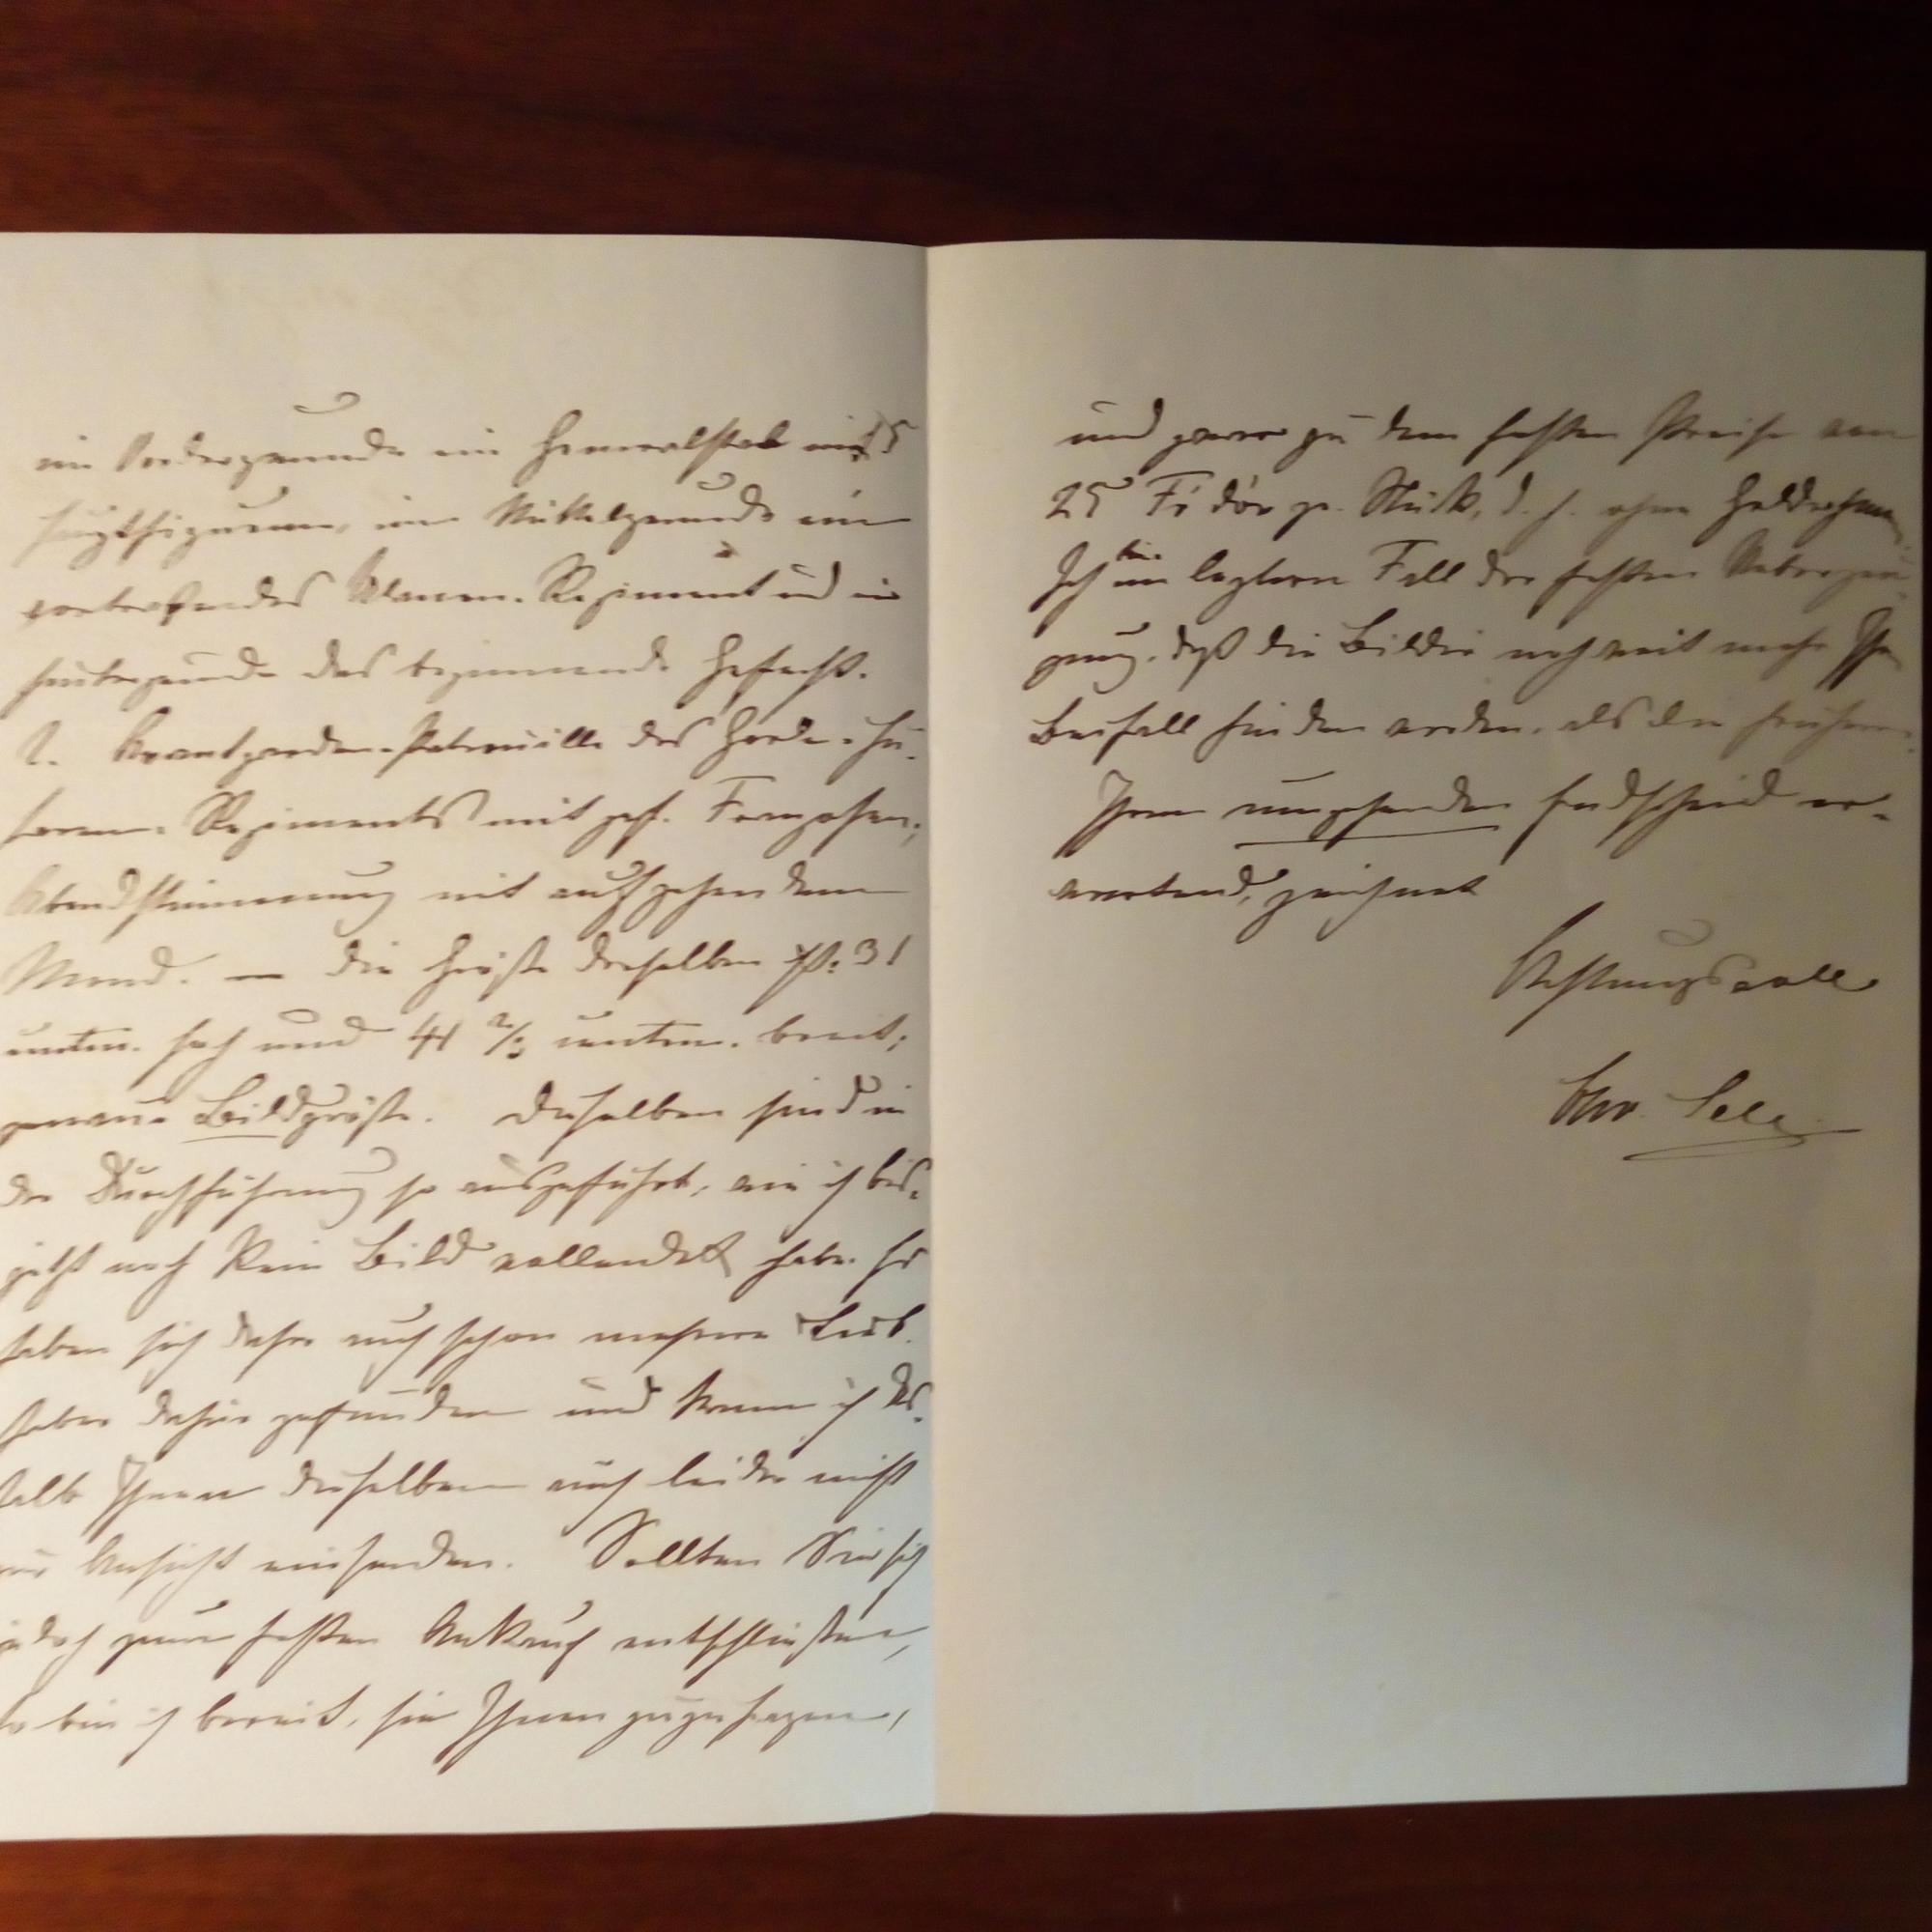 im Vordergrunde ein Generalstab mit 5
Hauptfiguren, im Mittelgrunde ein
vortrabendes Ulanen-Regiment und im
Hintergrunde das beginnende Gefecht.
2. Avantgarden-Patrouille des Garde-Hu-
saren-Regiments mit gef. Franzosen;
Abendstimmung mit aufgehendem
Mond. — Die Größe derselben ist: 31
hoch und 41 2/3 breit;
genaue Bildgröße. Dieselben sind in
der Durchführung so ausgeführt, wie ich bis-
jetzt noch kein Bild vollendet habe. Es
haben sich daher auch schon mehrere Lieb-
haber dafür gefunden und kann ich des-
halb Ihnen dieselben auch leider nicht
zur Ansicht einsenden. Sollten Sie sich
jedoch zum festen Ankauf entschließen,
so bin ich bereit, sie Ihnen zuzusagen,
und zwar zu dem festen Preise von
25 Fr'dór pr. Stück, d. h. ohne Goldrahmen.
Ich bin im letztern Fall der festen Ueberzeu-
gung, daß die Bilder noch weit mehr Ihr
Beifall finden werden, als die frühern.
Ihren umgehenden Endscheid er-
wartend, zeichnet
Achtungsvoll
Chr. Sell